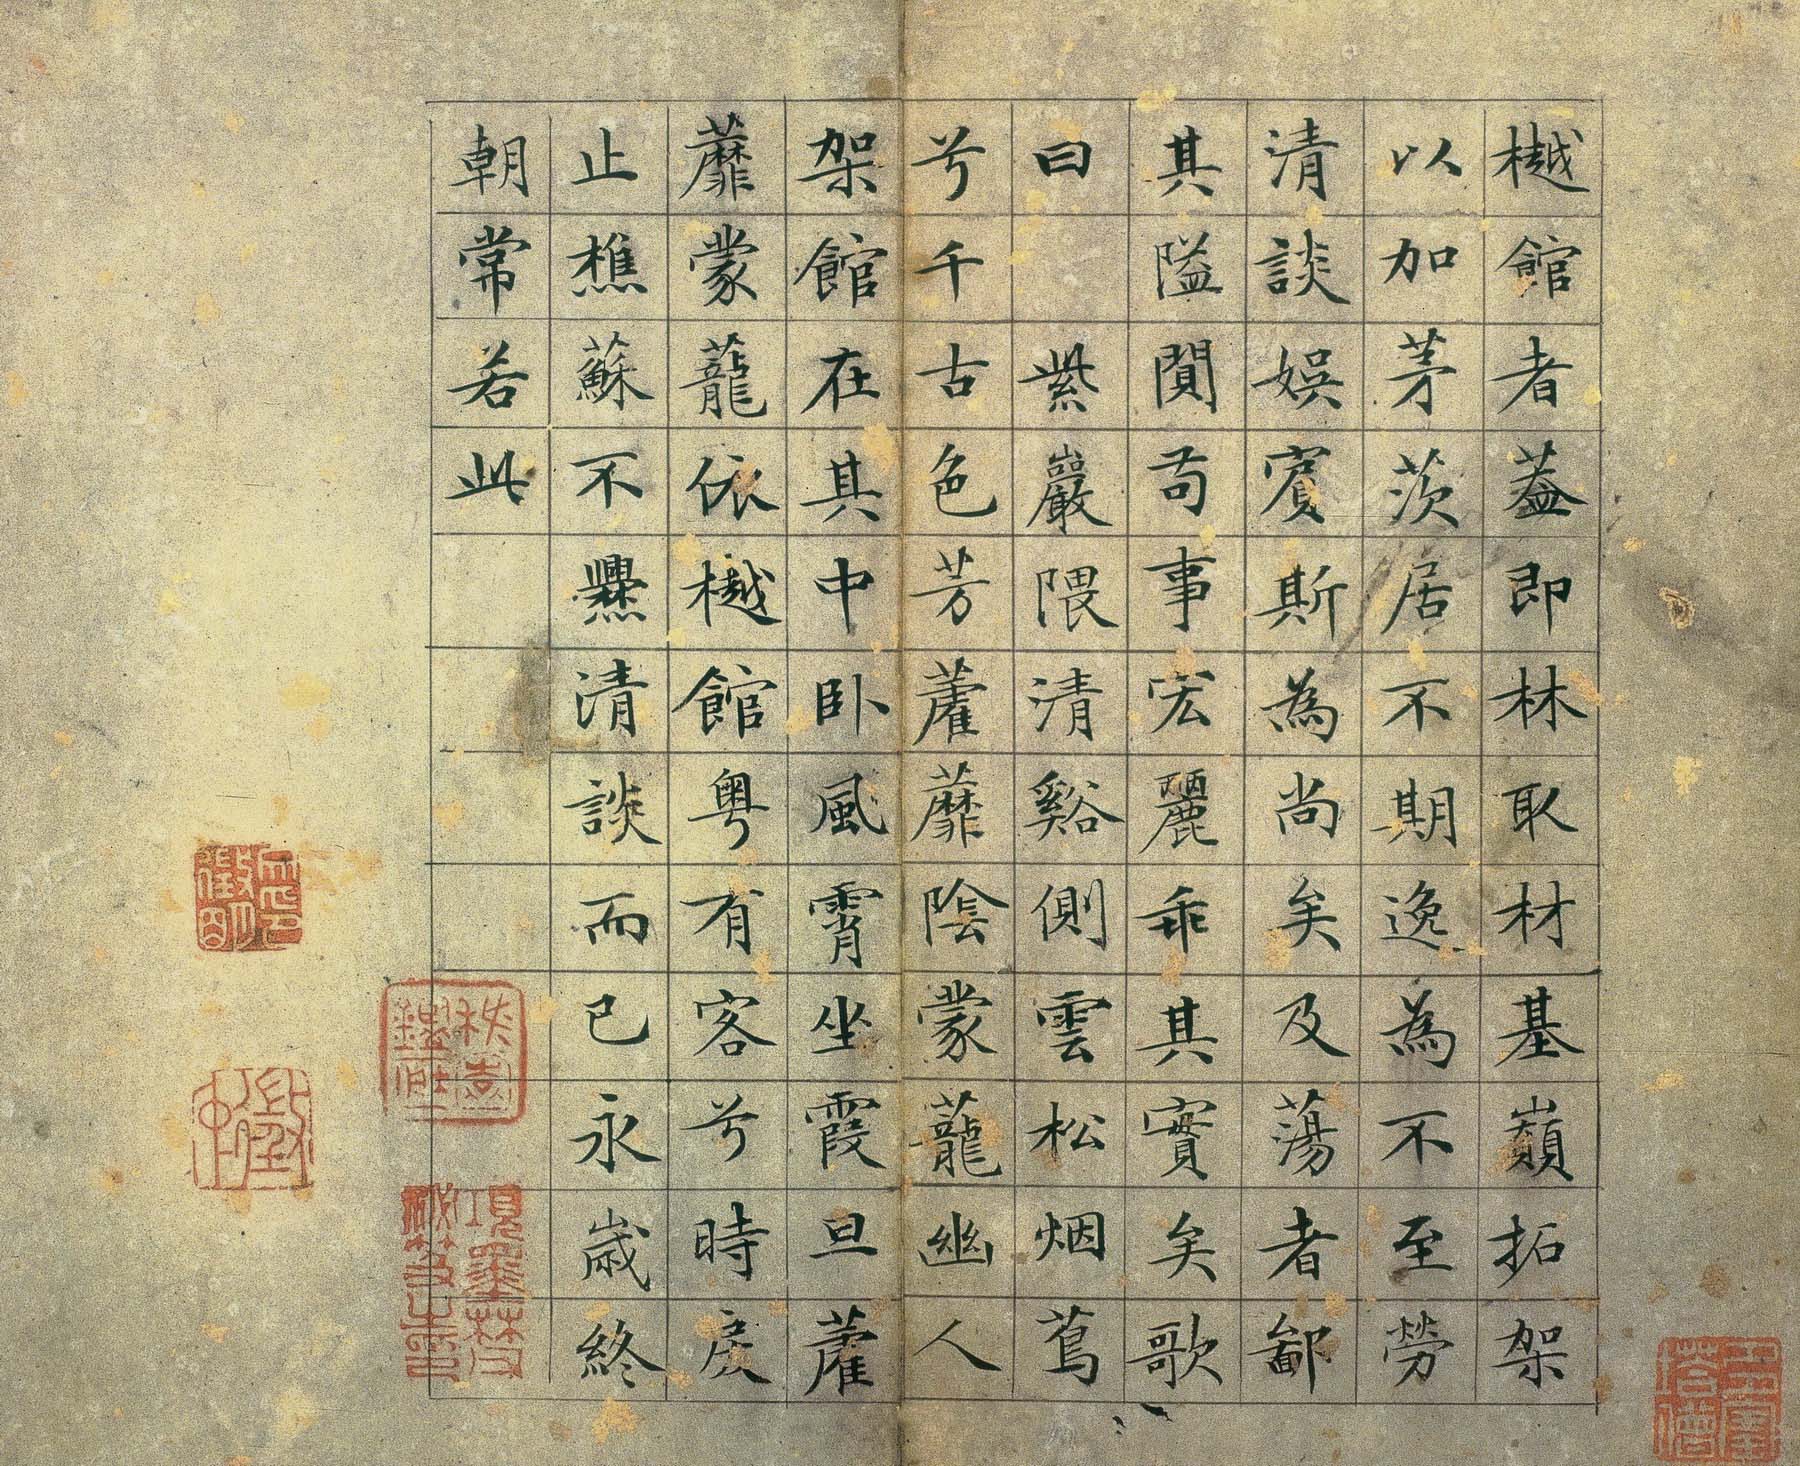 樾館者蓋即林取材基巔拓架
以加茅茨居不期逸為不至勞
清談娛賓斯為尚矣及蕩者鄙
其隘闃苟事宏麗乖其實矣歌
曰　紫巖隈清谿側雲松烟蔦
兮千古色芳藿蘼陰蒙蘢幽人
架館在其中卧風霄坐霞旦藿
蘼蒙蘢依樾館粵有客兮時戾
止樵蘇不爨清談而已永歲終
朝常若此
項墨林父
秘笈之印